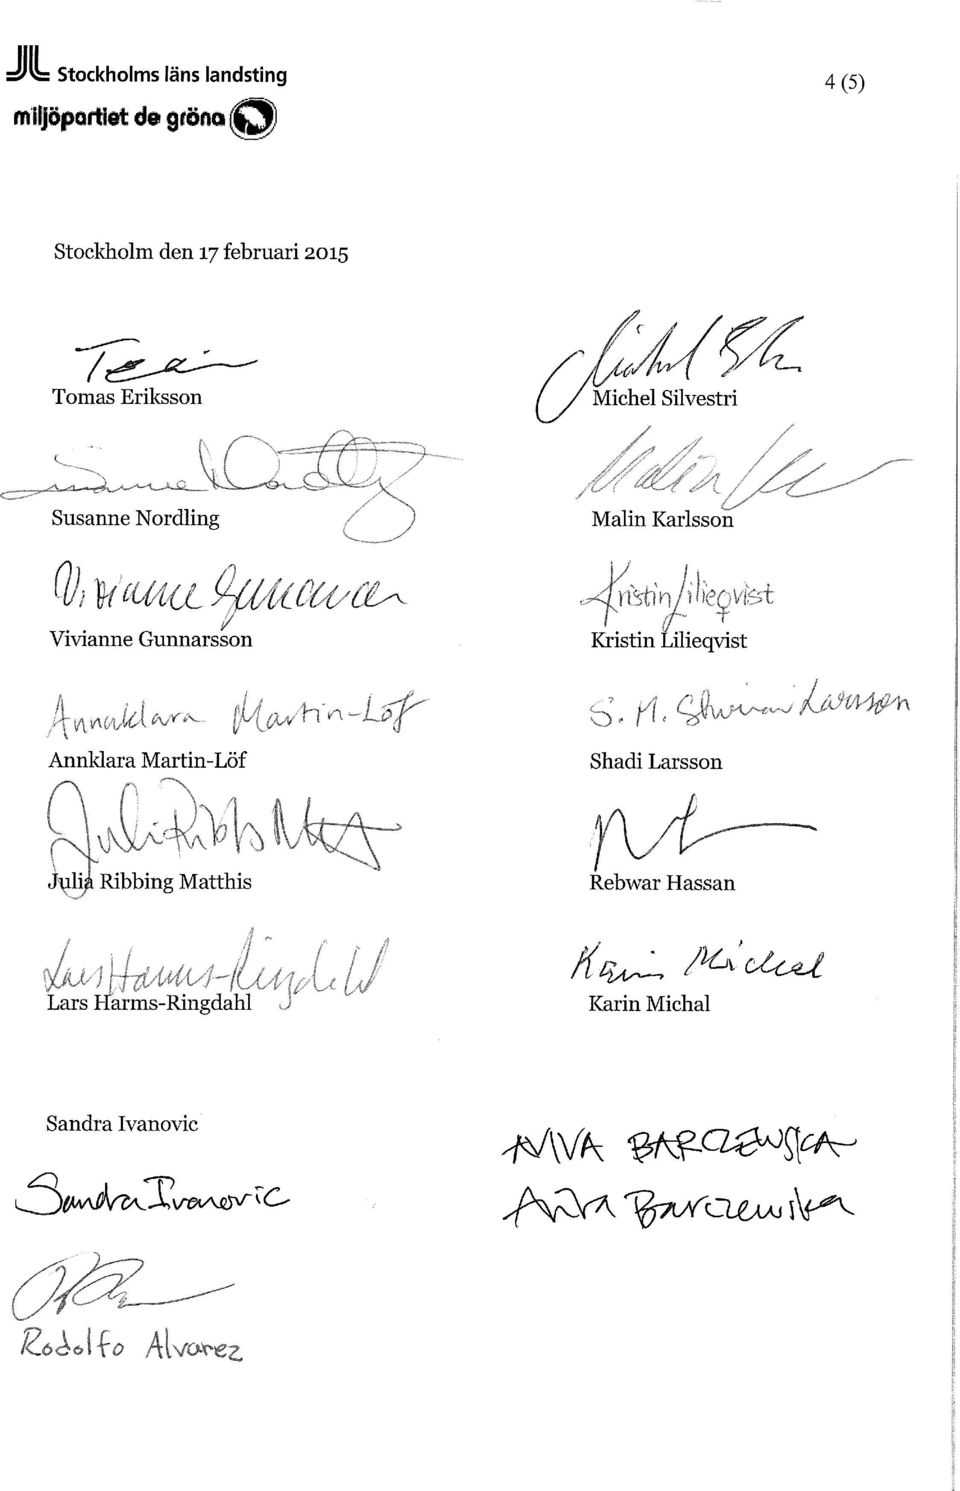 Stockholms läns landsting
4 (5)
miljöpartiet de gröna
Stockholm den 17 februari 2015
Tomas Eriksson
Michel Silvestri
Susanne Nordling
Malin Karlsson
Susanne Nordling
Malin
Vivianne Gunnarsson
Kristin Lilieqvist
Vivianne Gunnarsson
Kristin Lilieqvist
Annaklara Martin-Löf
S. M. Larsson
Annklara Martin-Löf
Shadi Larsson
Julia Ribbing Matthis
Rebwar Hassan
Lars Harms-Ringdahl
Karin Michal
Lars Harms-Ringdahl
Karin Michal
Sandra Ivanovic
AVIVA BARCZEWSKA
Sandra Ivanovic
Aviva Barczewska
Rodolfo Alvarez